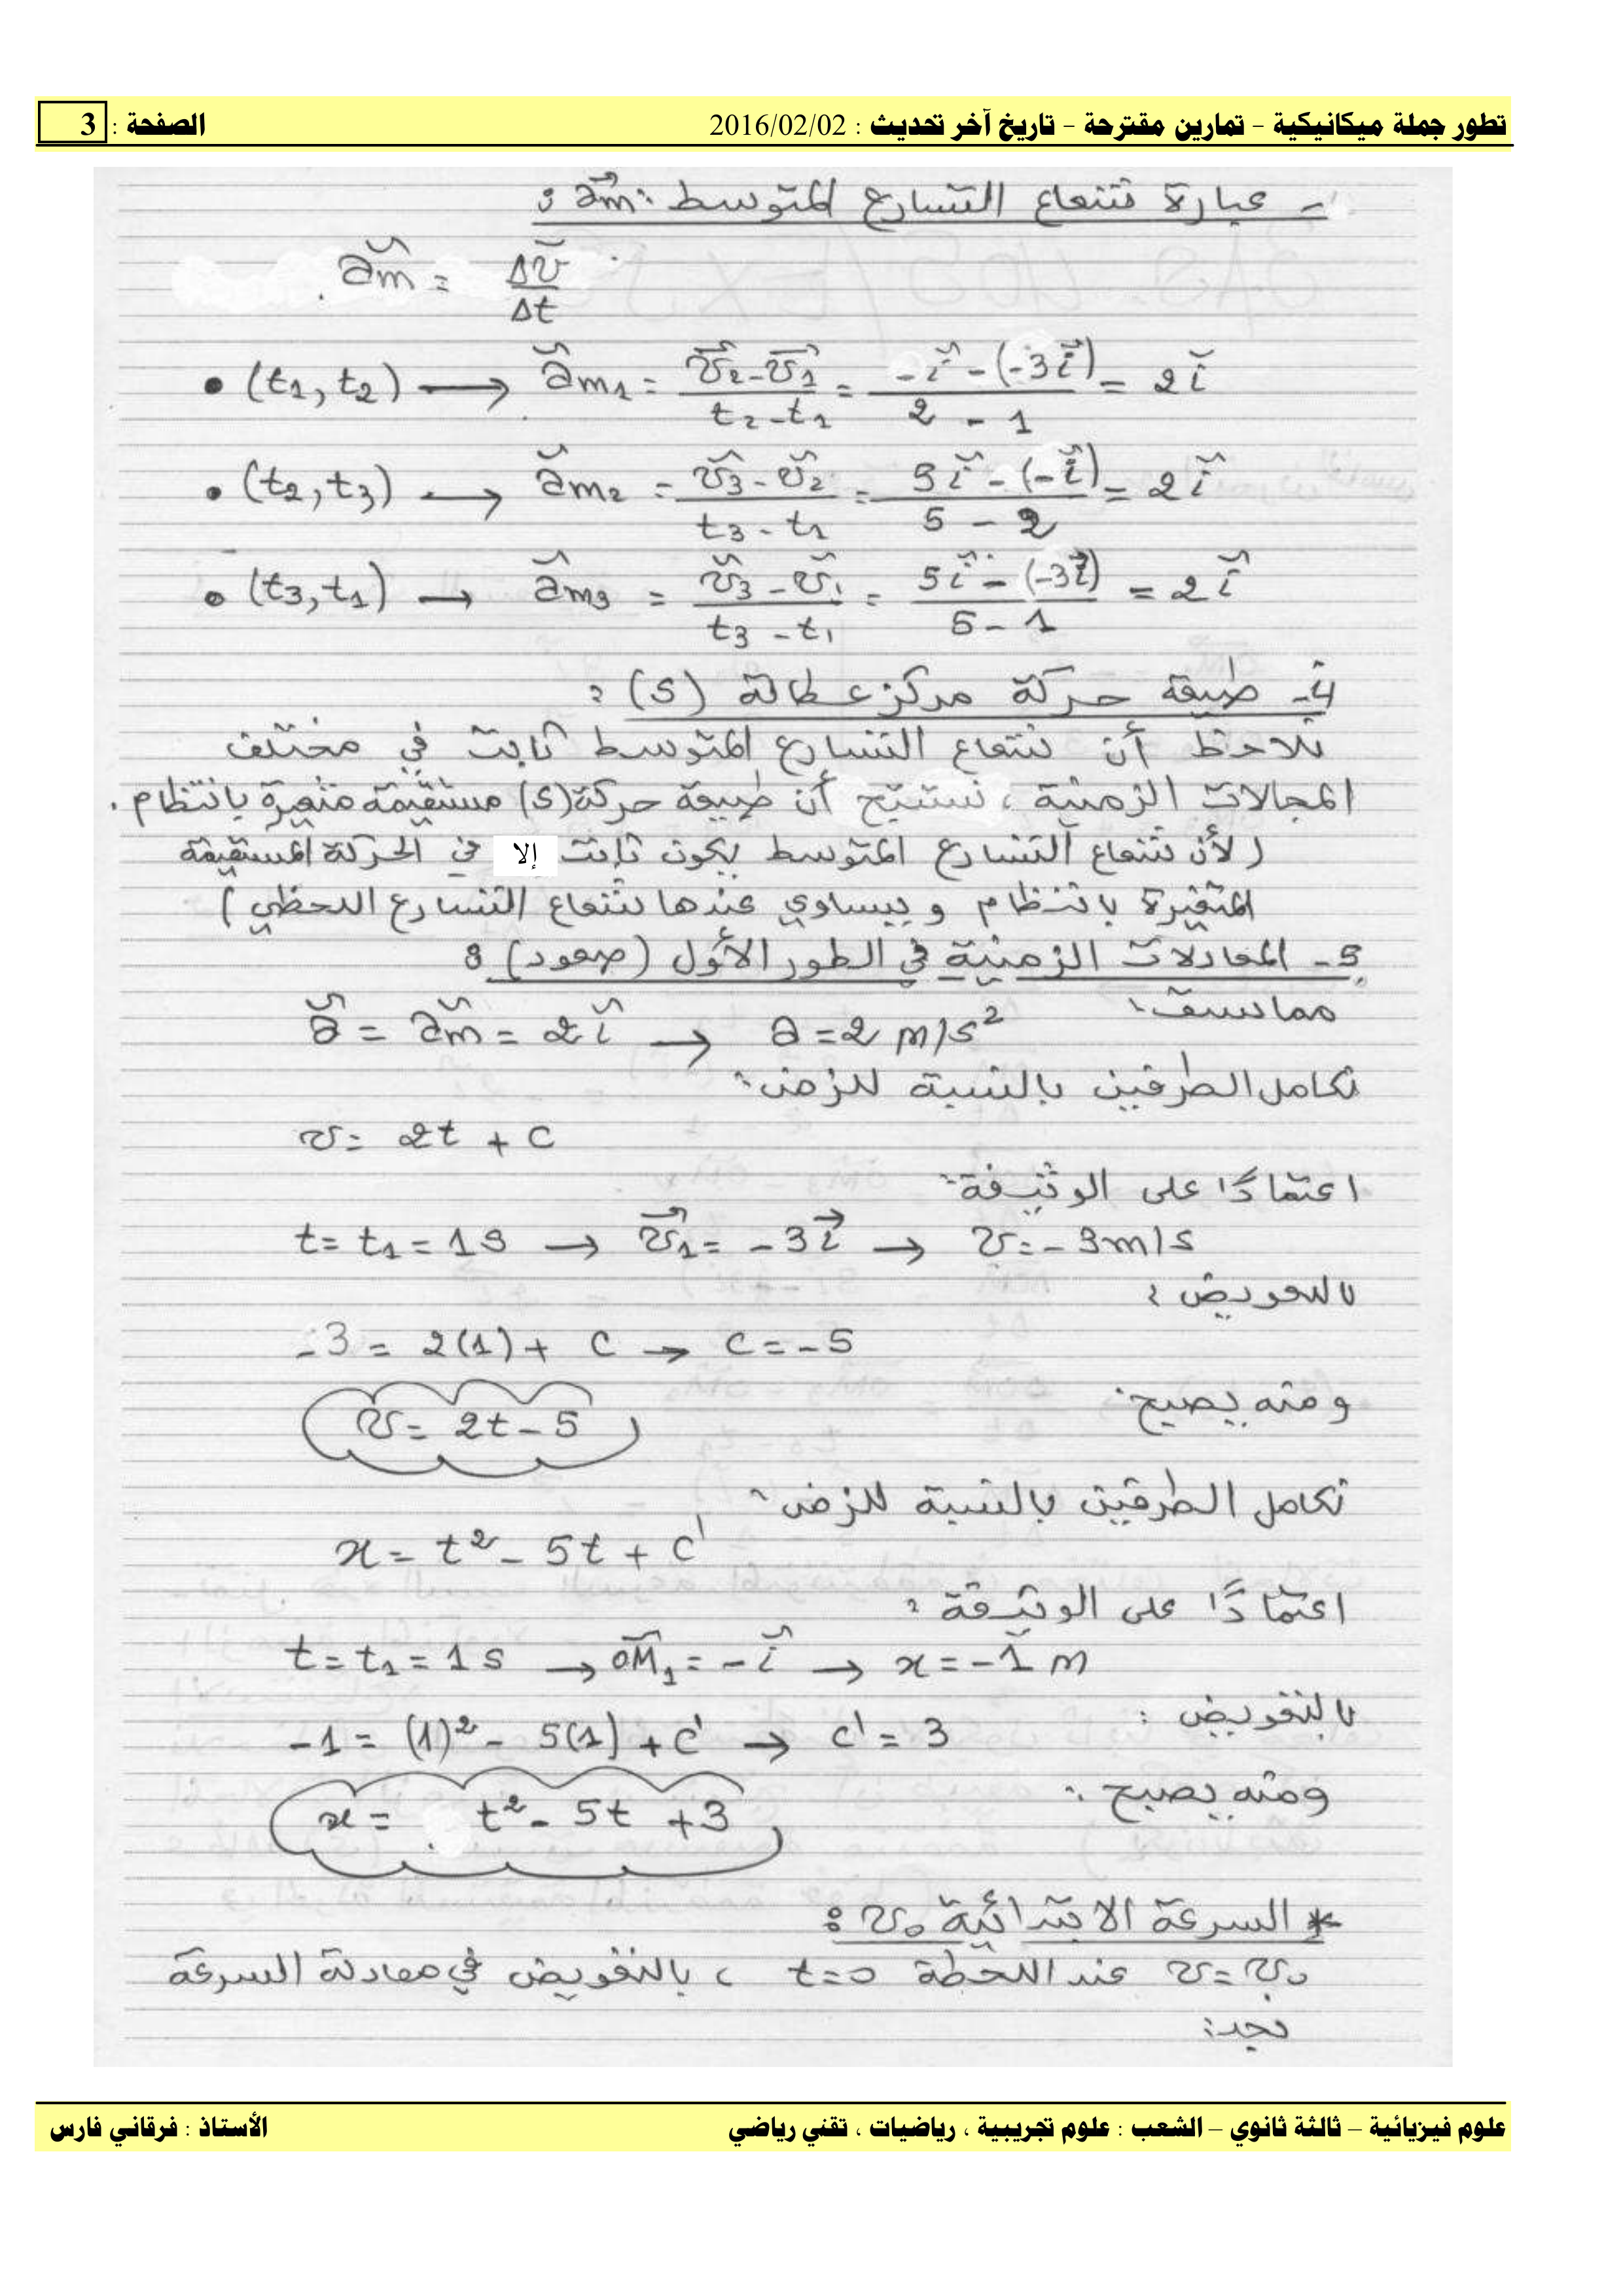 تطور جملة ميكانيكية - تمارين مقترحة - تاريخ آخر تحديث : 2016/02/02 الصفحة : 3
- عبارة شعاع التسارع المتوسط a⃗m :
a⃗m = Δv⃗/Δt
• (t1, t2) → a⃗m1 = (v⃗2 - v⃗1)/(t2 - t1) = (-i⃗ - (-3i⃗))/(2 - 1) = 2i⃗
• (t2, t3) → a⃗m2 = (v⃗3 - v⃗2)/(t3 - t2) = (5i⃗ - (-i⃗))/(5 - 2) = 2i⃗
• (t3, t1) → a⃗m3 = (v⃗3 - v⃗1)/(t3 - t1) = (5i⃗ - (-3i⃗))/(5 - 1) = 2i⃗
4- طبيعة حركة مركز عطالة (S) :
نلاحظ أن شعاع التسارع المتوسط ثابت في مختلف
المجالات الزمنية ، نستنتج أن طبيعة حركة (S) مستقيمة متغيرة بانتظام .
( لأن شعاع التسارع المتوسط يكون ثابت إلا في الحركة المستقيمة
المتغيرة بانتظام و يساوي عندها شعاع التسارع اللحظي )
5- المعادلات الزمنية في الطور الأول (صعود) :
مما سبق :
a⃗ = a⃗m = 2i⃗ → a = 2 m/s²
نكامل الطرفين بالنسبة للزمن :
v = 2t + c
اعتمادًا على الوثيقة :
t = t1 = 1s → v⃗1 = -3i⃗ → v = -3m/s
بالتعويض :
-3 = 2(1) + c → c = -5
ومنه يصبح :
v = 2t - 5
نكامل الطرفين بالنسبة للزمن :
x = t² - 5t + c'
اعتمادًا على الوثيقة :
t = t1 = 1s → OM⃗1 = -i⃗ → x = -1 m
بالتعويض :
-1 = (1)² - 5(1) + c' → c' = 3
ومنه يصبح :
x = t² - 5t + 3
* السرعة الابتدائية v0 :
v = v0 عند اللحظة t=0 ، بالتعويض في معادلة السرعة
نجد :
علوم فيزيائية – ثالثة ثانوي – الشعب : علوم تجريبية ، رياضيات ، تقني رياضي الأستاذ : فرقاني فارس